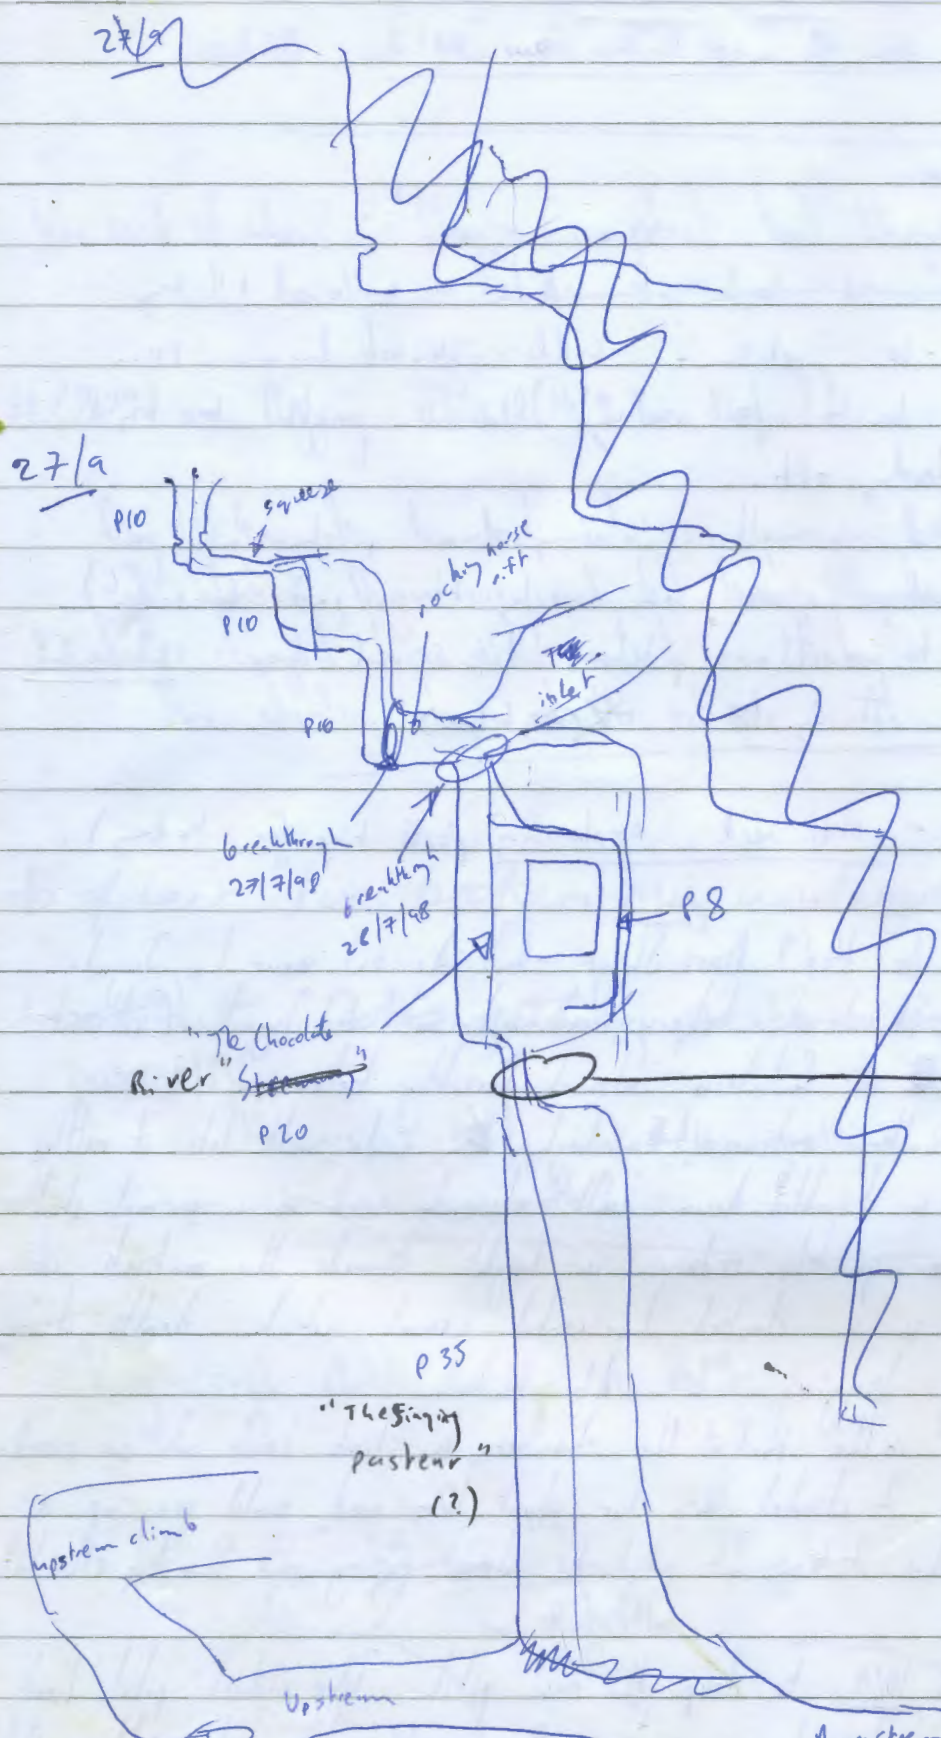 27/9
27/9
P10
squeeze
rocking horse
rift
P10
inlet
P10
breakthrough
27/7/98
breakthrough
28/7/98
P8
"The Chocolate
River"
P20
P35
"The Singing
Pasteur"
(?)
upstream climb
Upstream